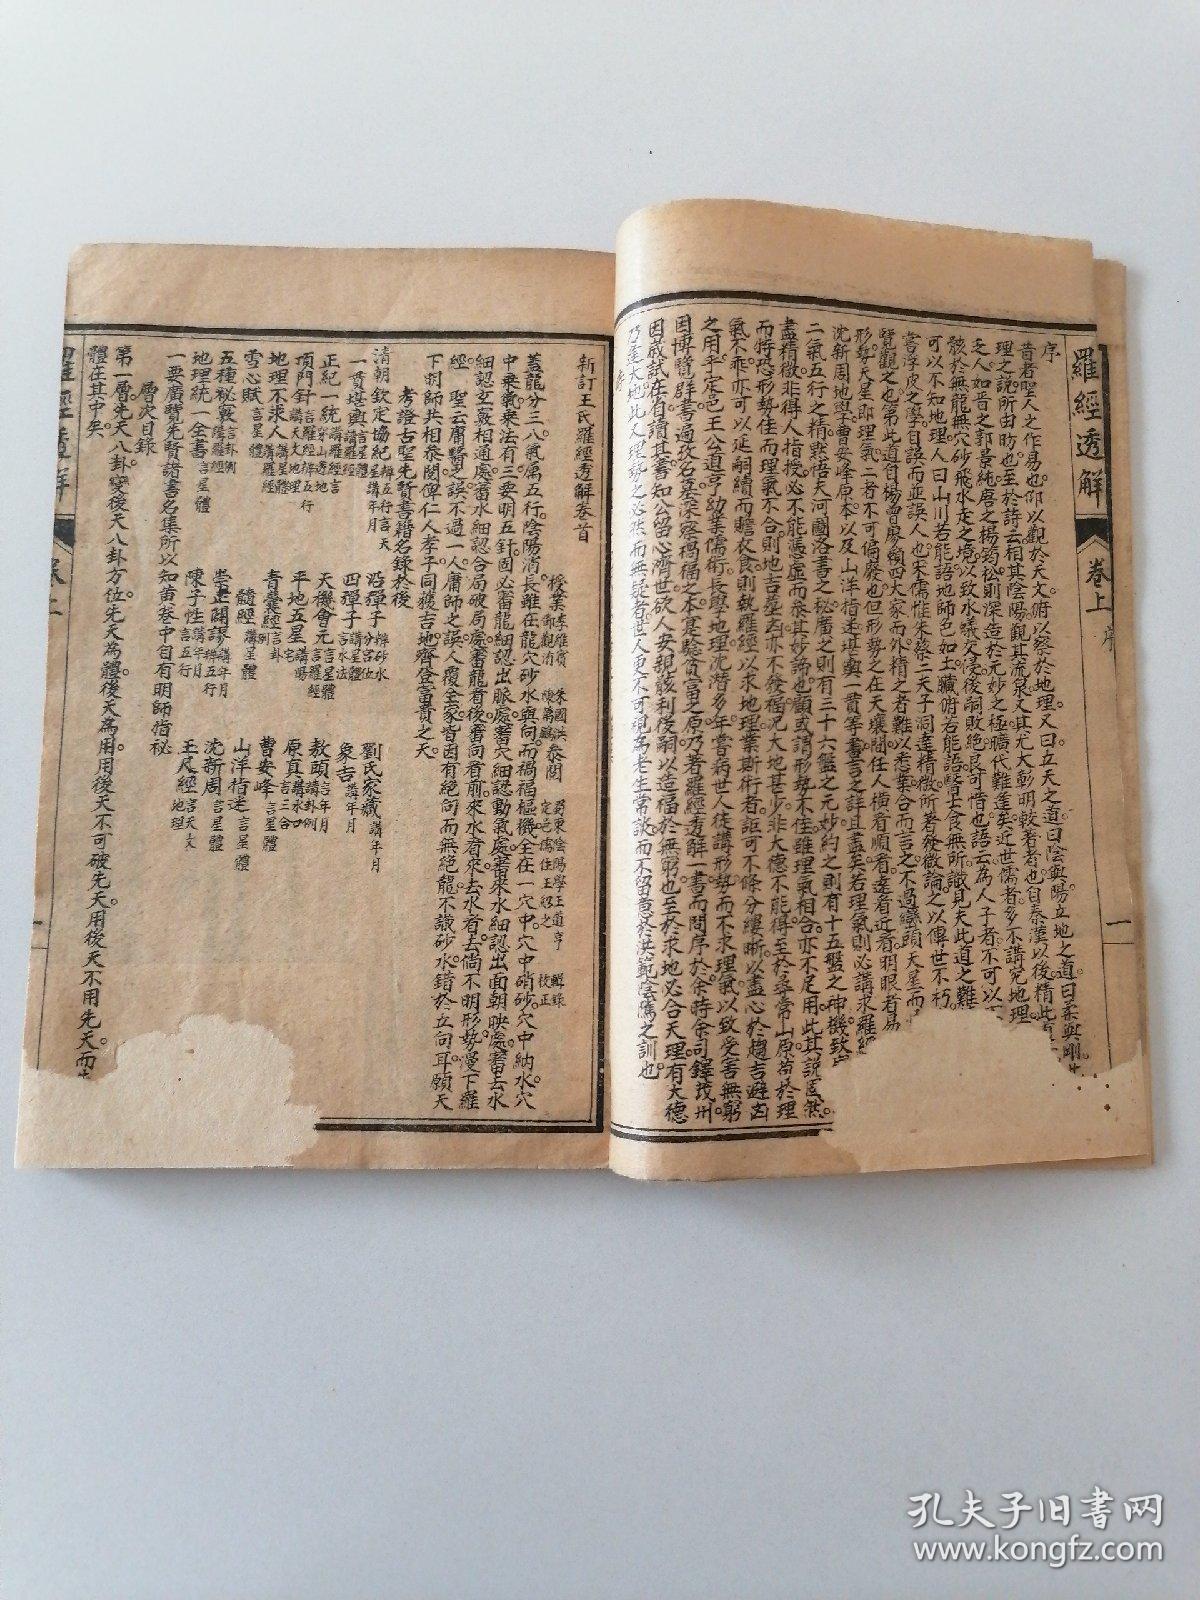 羅經透解
卷上
序
一
序
昔者聖人之作易也仰以觀於天文俯以察於地理又曰立天之道曰陰與陽立地之道曰柔與剛
理之說所由昉也至於詩云相其陰陽觀其流泉又其尤大彰明較著者也自秦漢以後精此
乏人如晋之郭景純唐之楊筠松則深造於元妙之極曠代難逢矣近世儒者多不講究地理
骸於無龍無穴砂飛水走之境以致水蟻交侵後嗣敗絕良可惜也語云為人子者不可以不
可以不知地理人曰山川若能語地師色如土臟腑若能語醫士食無所識見夫此道之難
書浮皮之學自誤而並誤人也宋儒惟朱蔡二夫子洞達精微所著發微論之以傳世不朽
覽觀之也第此道自楊曾廖賴四大家而外精之者難以悉業合而言之不過巒頭天星而
形勢天星即理氣二者不可偏廢也但形勢之在天壤間任人橫看順看遠看近看明眼者易
沈新周地學曹安峰原本以及山洋指迷堪輿一貫等書言之詳且盡矣若理氣則必講求羅經
二氣五行之精點悟天河圖洛書之秘廣之則有三十六盤之元妙約之則有十五盤之神機致
盡精微非得人指授必不能憑虛而參其妙諦也顧或謂形勢不佳雖理氣相合亦不足用此其說固然
而特恐形勢佳而理氣不合則地吉葬凶亦不發福況大地甚少非大德不能得至於尋常山原苟於理
氣不乖亦可以延嗣續而贍衣食則執羅經以求地理業斯術者詎可不條分縷晰以盡心於趨吉避凶
之用乎定邑王公道亨幼業儒術長學地理沈潛多年嘗病世人徒講形勢而不求理氣以致受害無窮
因博覽群書遍攷名墓深察禍福之本真驗貧富之原乃著羅經透解一書而問序於余時余司鐸茂州
因哉試在有讀其書知公留心濟世欲人安親骸利後嗣以造福於無窮也至於求地必合天理有大德
乃逢大地此又理勢之必然而無疑者世人更不可視為老生常談而不留意於洪範陰騭之訓也
新訂王氏羅經透解卷首
授業李維賓
鄧觀清
朱國洪
陳第灝
參閱
蜀東陰陽學王道亨
輯錄
定邑儒住王紹之
校正
蓋龍分三八氣属五行陰陽消長雖在龍穴砂水與向而禍福樞機全在一穴中穴中硝砂穴中納水穴
中乘氣乘法有三要明五針固必審龍細認出脈處審穴細認動氣處審來水細認出面朝映處審去水
細認玄竅相通處審水細認合局破局處審龍者後審向看前來水者來去水者去倘不明形勢慢下羅
經 聖云庸醫之誤不過一人庸師之誤人覆全家皆因有絕向而無絕龍不識砂水錯於立向耳願天
下明師共相參閱俾仁人孝子同獲吉地齊登富貴之天
考證古聖先賢書籍名錄於後
清朝欽定協紀辨五行言天星講年月
沿彈子辨砂水分宮位
劉氏家藏講年月
一貫堪輿言星體講羅經
四彈子講星體言水法
象吉講年月
正紀一統講羅經言穿山透地
天機會元言星體言羅經
教頭言年月講卦例
頂門針言羅經辨五行講天文地理
平地五星講陽宅
原真講水口言三合
地理不求人講星體講羅經
青囊經言卦例
曹安峰言星體
雪心賦言星體
髓經講星體
山洋指迷言星體
五種秘竅言卦例講羅經
崇正闢謬講年月辨五行
沈新周言星體
地理統一全書言星體
陳子性講年月言五行
王尺經言天文地理
一要廣覽先賢諸書名集所以知萬卷中自有明師指秘
層次目錄
第一層先天八卦變後天八卦方位先天為體後天為用用後天不可破先天用後天不用先天而先
體在其中矣
孔夫子旧书网
www.kongfz.com